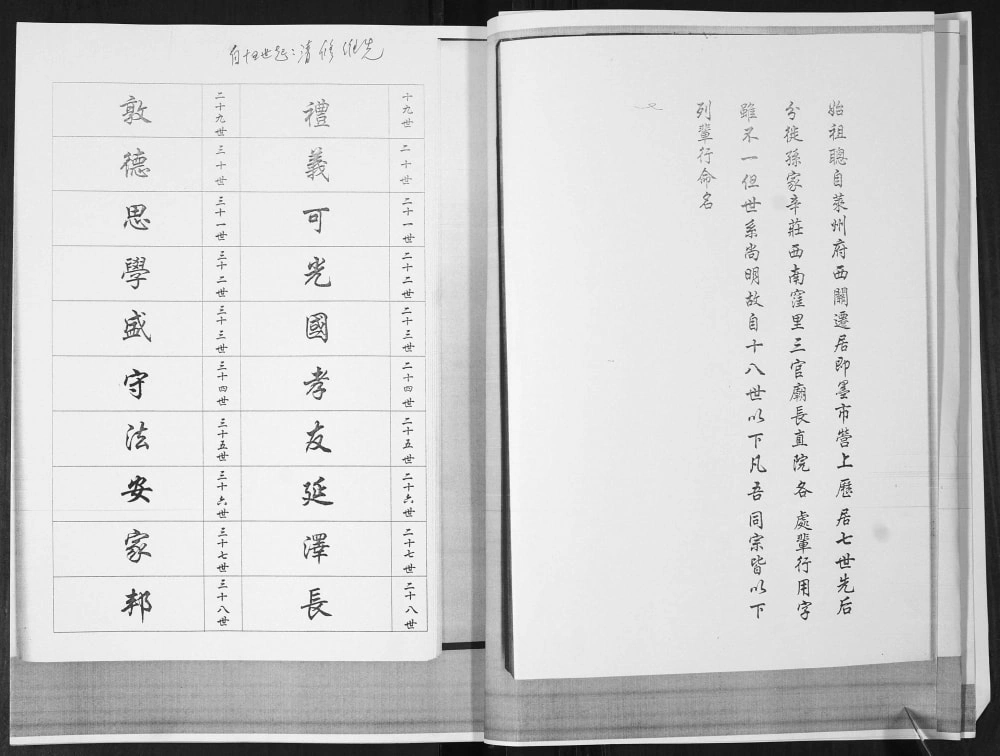 始祖聰自萊州府西關遷居即墨市營上歷居七世先后
分徙孫家辛莊西南窪里三官廟長直院各處輩行用字
雖不一但世系尚明故自十八世以下凡吾同宗皆以下
列輩行命名
自十五世起：清修維先
十九世 禮
二十世 義
二十一世 可
二十二世 光
二十三世 國
二十四世 孝
二十五世 友
二十六世 延
二十七世 澤
二十八世 長
二十九世 敦
三十世 德
三十一世 思
三十二世 學
三十三世 盛
三十四世 守
三十五世 法
三十六世 安
三十七世 家
三十八世 邦